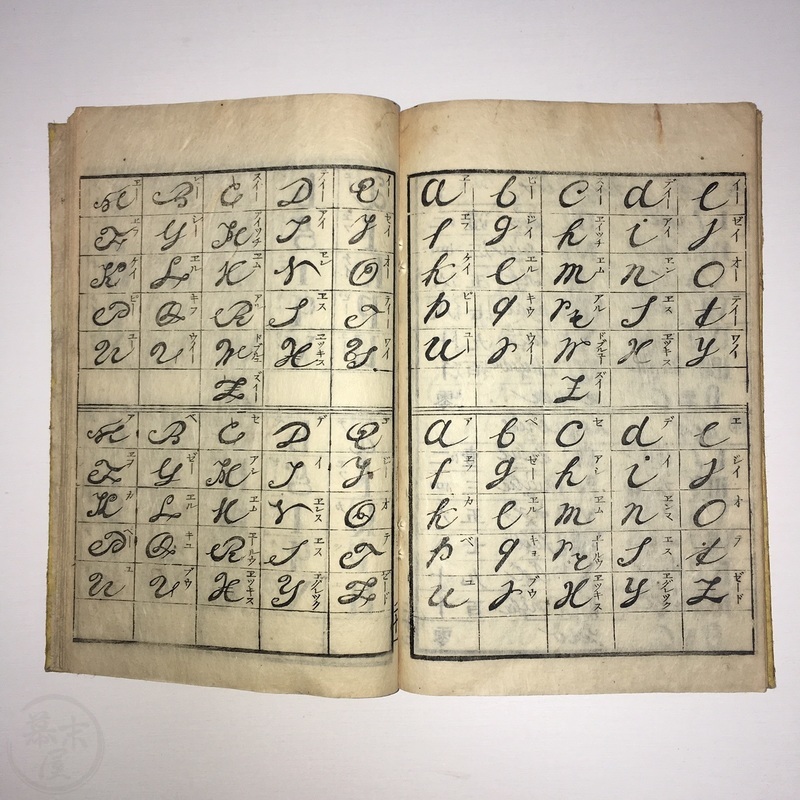 A エー B ビー C スィー D ディー E イー
F エフ G ジー H エイッチ I アイ J ゼイ
K ケイ L エル M エム N エン O オー
P ピー Q キフ R アル S エス T ティー
U ユー V ウイー W ドブルユー X エッキス Y ワイ
Z ズイー
A ア B ベ C セ D デ E エ
F エフ G ゼー H アシ I イ J
K カ L エル M エム N エンス O オ
P ペ Q キュ R エールウ S エス T テ
U ユ V ブウ X エッキス Y エグレック Z ゼード
a エー b ビー c スィー d ディー e イー
f エフ g ジイ h エイッチ i アイ j ゼイ
k ケイ l エル m エム n エン o オー
p ピー q キウ r アル s エス t ティー
u ユー v ウイー w ドブルユー x エッキス y ワイ
z ズイー
a ア b ベ c セ d デ e エ
f エフ g ゼー h アシ i イ j
k カ l エル m エム n エンマ o オ
p ペ q キョ r エールウ s エス t テ
u ユ v ブウ x エッキス y エグレック z ゼード
幕末屋